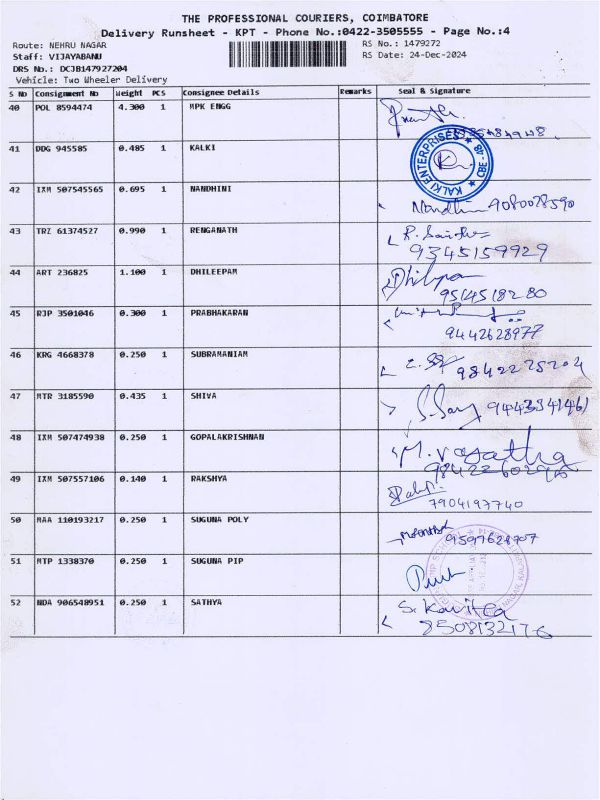 THE PROFESSIONAL COURIERS, COIMBATORE
Delivery Runsheet - KPT - Phone No.:0422-3505555 - Page No.:4
Route: NEHRU NAGAR RS No.: 1479272
Staff: VIJAYABANU RS Date: 24-Dec-2024
DRS No.: DCJB147927204
Vehicle: Two Wheeler Delivery
S No Consignment No Weight PCS Consignee Details Remarks Seal & Signature
40 POL 8594474 4.300 1 MPK ENGG
41 DDG 945585 0.485 1 KALKI KALKI ENTERPRISES CBE - 48
42 IXM 507545565 0.695 1 NANDHINI Nandhini 9080028590
43 TRZ 61374527 0.990 1 RENGANATH 9345159929
44 ART 236825 1.100 1 DHILEEPAM 9514518280
45 RJP 3501046 0.300 1 PRABHAKARAN 9442628977
46 KRG 4668378 0.250 1 SUBRAMANIAM 9842275204
47 MTR 3185590 0.435 1 SHIVA 9443341461
48 IXM 507474938 0.250 1 GOPALAKRISHNAN
49 IXM 507557106 0.140 1 RAKSHYA 7904197740
50 MAA 110193217 0.250 1 SUGUNA POLY
51 MTP 1338370 0.250 1 SUGUNA PIP
52 NDA 906548951 0.250 1 SATHYA S. Kavitha
8508132176